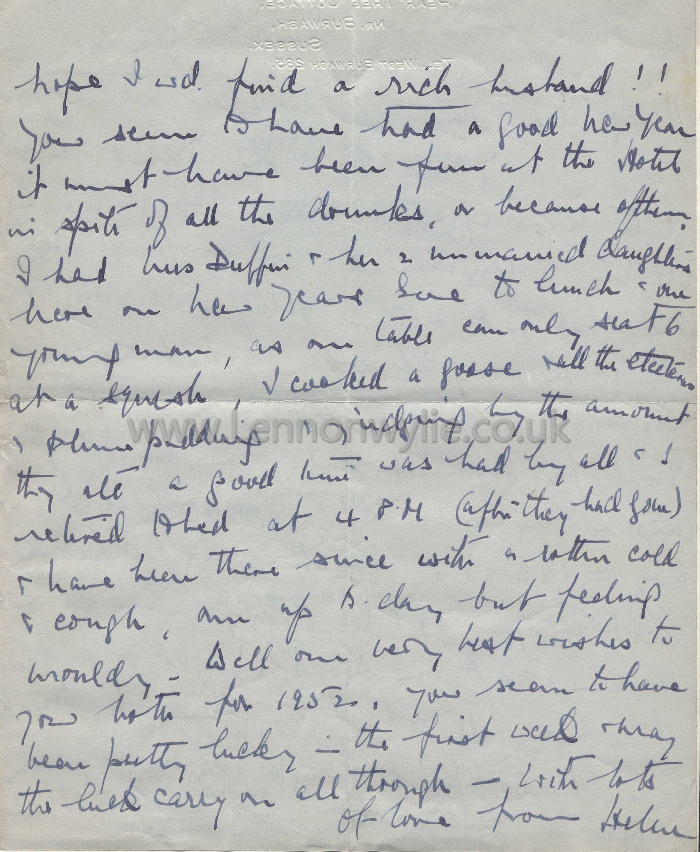 PEAR TREE COTTAGE,
NR. BURWASH,
SUSSEX.
TEL. WEST BURWASH 236.
hope I wd. find a rich husband!!
You seem to have had a good New Year
it must have been fun at the Hotel
in spite of all the drunks, or because of them,
I had Mrs Duffin & her 2 unmarried daughters
here on New Years Eve to lunch & one
young man, as our table can only seat 6
at a squash, I cooked a goose & all the etceteras
& plum pudding & judging by the amount
they ate a good time was had by all & I
retired to bed at 4 P.M (after they had gone)
& have been there since with a rotten cold
& cough, am up to-day but feeling
wrouldy – Well our very best wishes to
you both for 1952, you seem to have
been pretty lucky – the first week & may
the luck carry on all through – With lots
of love from Helen
www.Lennonwylie.co.uk